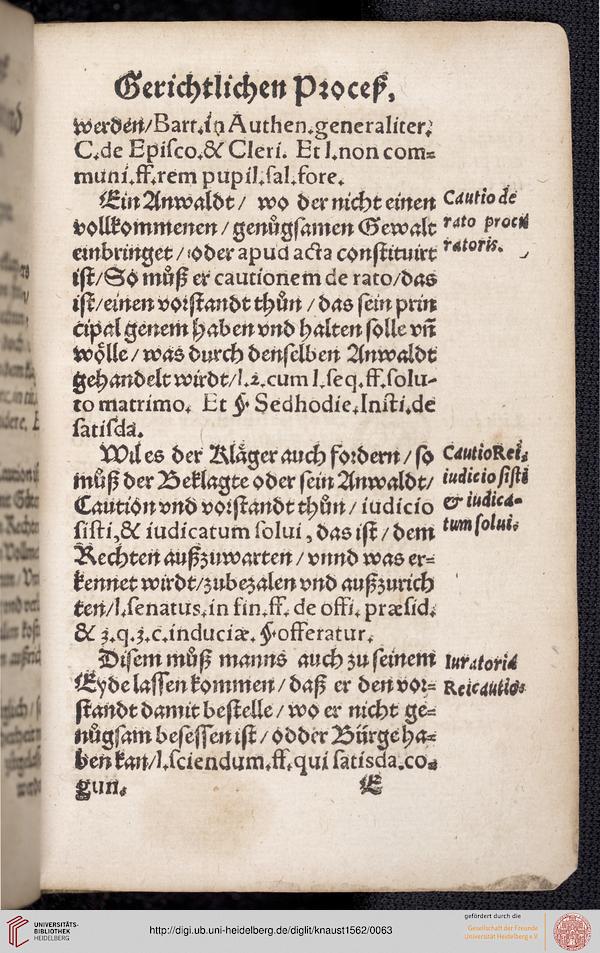 Gerichtlichen Proceß.
werden/Bart.in Authen.generaliter.
C.de Episco.& Cleri. Et l.non com=
muni.ff.rem pupil.sal.fore.
Ein Anwaldt / wo der nicht einen
vollkommenen / genůgsamen Gewalt
einbringet / oder apud acta constituirt
ist/So můß er cautionem de rato/das
ist/einen vorstandt thůn / das sein prin
cipal genem haben vnd halten solle vñ
wölle / was durch denselben Anwaldt
gehandelt wirdt/l.2.cum l.seq.ff.solu-
to matrimo. Et §. Sedhodie.Insti.de
satisda.
Cautio de
rato procu
ratoris.
Wil es der Kläger auch fordern / so
můß der Beklagte oder sein Anwaldt/
Caution vnd vorstandt thůn / iudicio
sisti,& iudicatum solui, das ist / dem
Rechten außzuwarten / vnnd was er=
kennet wirdt/zubezalen vnd außzurich
ten/l.senatus.in fin.ff. de offi. præsid.
& 3.q.3.c.induciæ. §.offeratur.
Cautio Rei,
iudicio sisti
& iudica-
tum solui.
Disem můß manns auch zu seinem
Eyde lassen kommen / daß er den vor=
standt damit bestelle / wo er nicht ge=
nůgsam besessen ist / odder Bürge ha=
ben kan/l.sciendum.ff.qui satisda.co=
gun.
E
Iuratoria
Rei cautio.
UNIVERSITÄTS-
BIBLIOTHEK
HEIDELBERG
http://digi.ub.uni-heidelberg.de/diglit/knaust1562/0063
gefördert durch die
Gesellschaft der Freunde
Universität Heidelberg e.V.